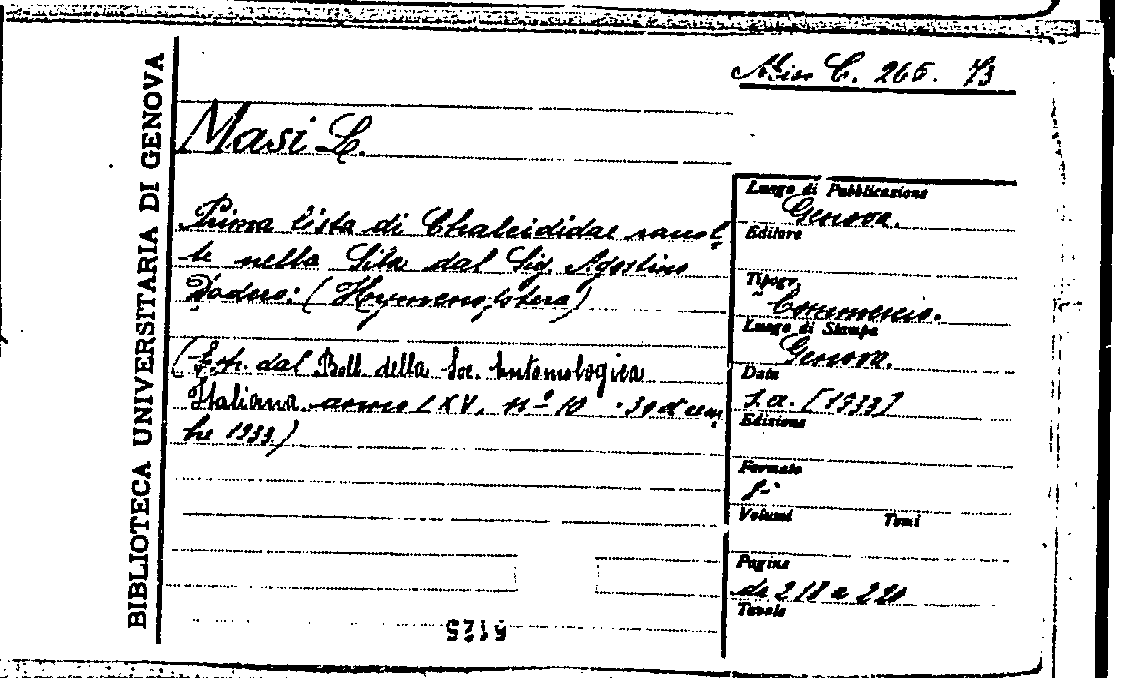 BIBLIOTECA UNIVERSITARIA DI GENOVA
Misc C. 265. 73
Masi L.
Prima lista di Chalcididae raccol
te nella Sila dal Sig. Agostino
Dodero: (Hymenoptera)
(Estr. dal Boll. della Soc. Entomologica
Italiana anno LXV, nº 10 - 30 dicem
bre 1933)
Luogo di Pubblicazione
Genova.
Editore
Tipogr.
Commercio.
Luogo di Stampa
Genova.
Data
s.a. [1933]
Edizione
Formato
8º
Volumi Tomi
Pagine
da 218 a 220
Tavole